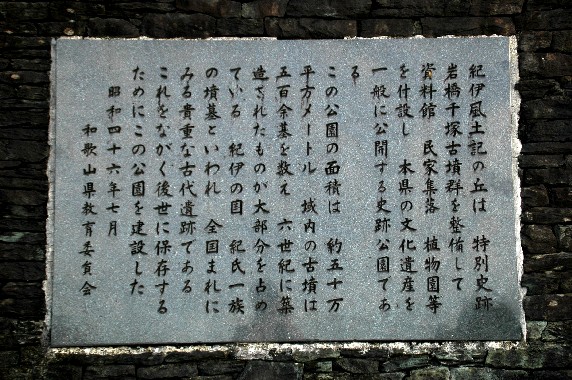 紀伊風土記の丘は 特別史跡
岩橋千塚古墳群を整備して
資料館 民家集落 植物園等
を付設し 本県の文化遺産を
一般に公開する史跡公園であ
る
この公園の面積は 約五十万
平方メートル 域内の古墳は
五百余基を数え 六世紀に築
造されたものが大部分を占め
ている 紀伊の国 紀氏一族
の墳墓といわれ 全国まれに
みる貴重な古代遺跡である
これをながく後世に保存する
ためにこの公園を建設した
昭和四十六年七月
和歌山県教育委員会